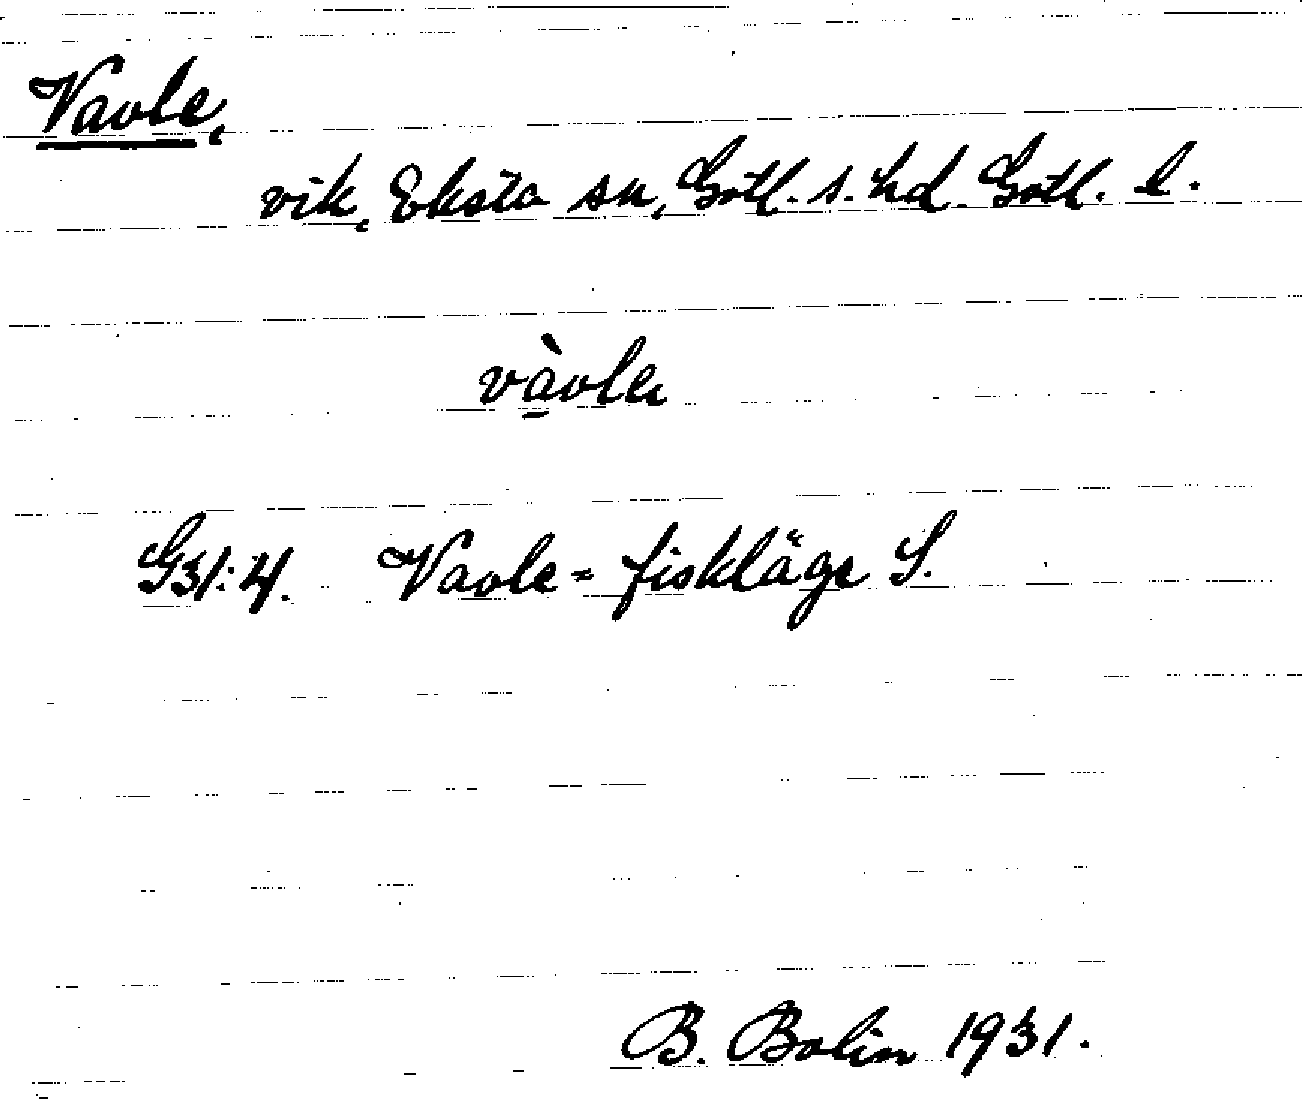 Vavle,
vik, Eksta sn, Gotl. s. hd. Gotl. l.
và̱vle
G31:4. Vavle - fiskläge S.
B. Bolin 1931.